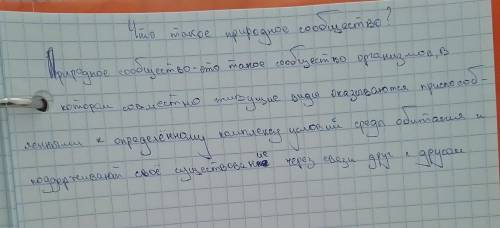 Что такое природное сообщество?
Природное сообщество-это такое сообщество организмов, в
котором совместно живущие виды оказываются приспособ-
ленными к определённому комплексу условий среды обитания и
поддерживают своё существование через связи друг с другом